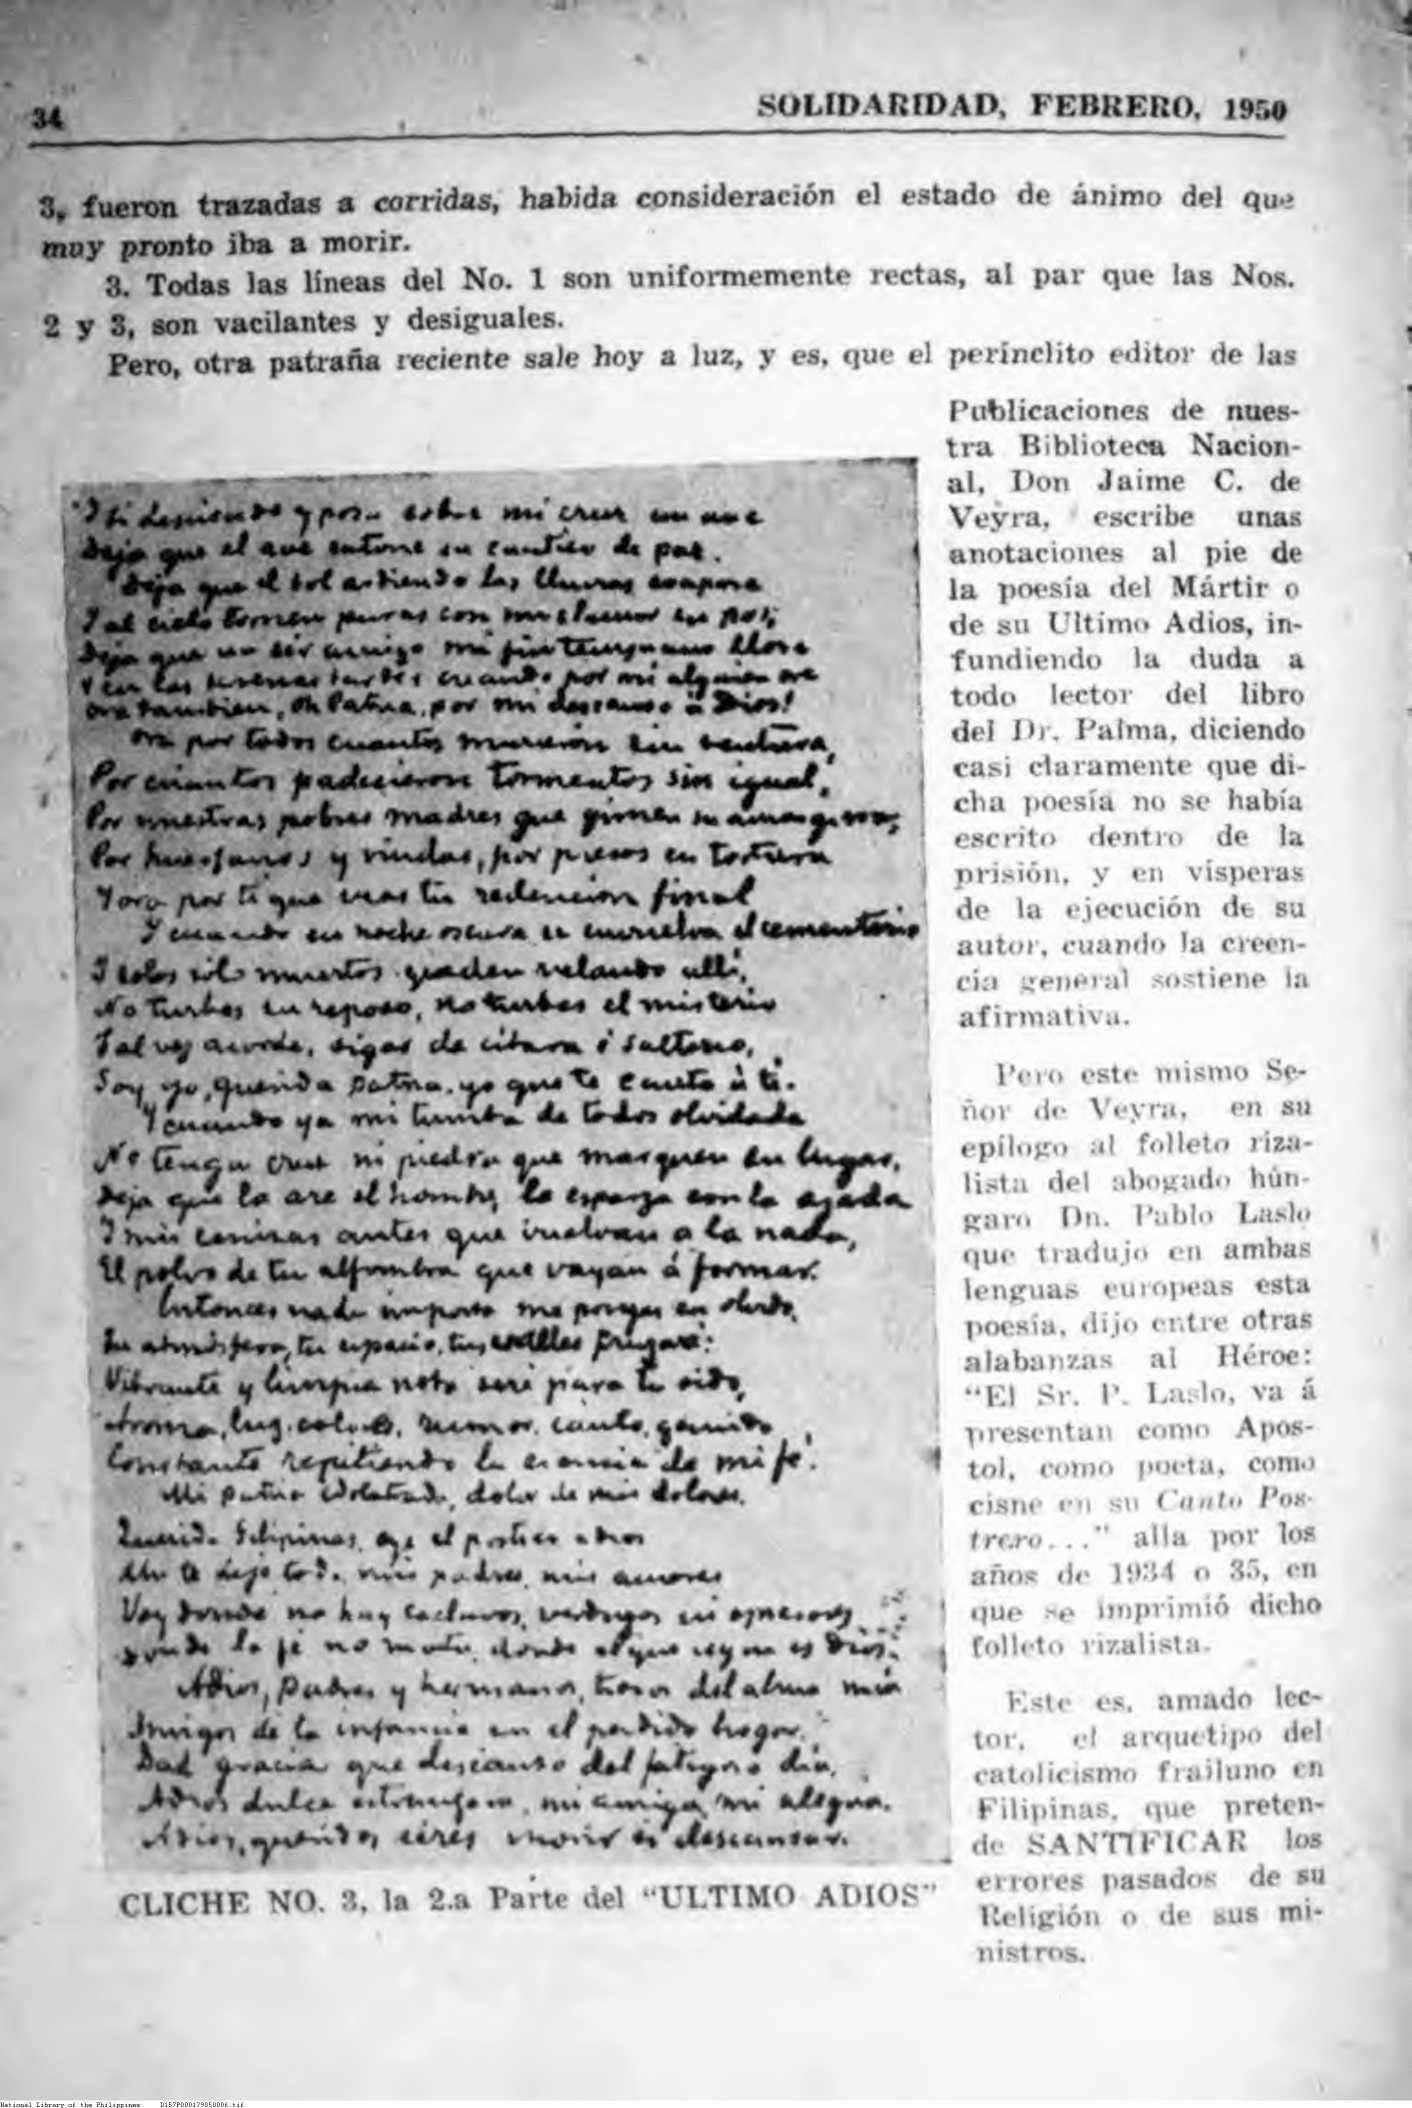 34
SOLIDARIDAD, FEBRERO, 1950
3, fueron trazadas a corridas, habida consideración el estado de ánimo del que
muy pronto iba a morir.
3. Todas las líneas del No. 1 son uniformemente rectas, al par que las Nos.
2 y 3, son vacilantes y desiguales.
Pero, otra patraña reciente sale hoy a luz, y es, que el perínclito editor de las
Publicaciones de nues-
tra Biblioteca Nacion-
al, Don Jaime C. de
Veyra, escribe unas
anotaciones al pie de
la poesía del Mártir o
de su Ultimo Adios, in-
fundiendo la duda a
todo lector del libro
del Dr. Palma, diciendo
casi claramente que di-
cha poesía no se había
escrito dentro de la
prisión, y en vísperas
de la ejecución de su
autor, cuando la creen-
cia general sostiene la
afirmativa.
Pero este mismo Se-
ñor de Veyra, en su
epílogo al folleto riza-
lista del abogado hún-
garo Dn. Pablo Laslo
que tradujo en ambas
lenguas europeas esta
poesía, dijo entre otras
alabanzas al Héroe:
"El Sr. P. Laslo, va á
presentan como Apos-
tol, como poeta, como
cisne en su Canto Pos-
trero..." alla por los
años de 1934 o 35, en
que se imprimió dicho
folleto rizalista.
Este es, amado lec-
tor, el arquetipo del
catolicismo frailuno en
Filipinas, que preten-
de SANTIFICAR los
errores pasados de su
Religión o de sus mi-
nistros.
Y si desciende y posa sobre mi cruz un ave
Deja que el ave entone su cantico de paz.
Deja que el sol ardiendo las lluvias evapore
Y al cielo tornen puras con mi clamor en pos,
Deja que un sér amigo mi fin temprano llore
Y en las serenas tardes cuando por mi alguien ore
Ora tambien, Oh Patria, por mi descanso á Dios!
Ora por todos cuantos murieron sin ventura,
Por cuantos padecieron tormentos sin igual,
Por nuestras pobres madres que gimen su amargura;
Por huerfanos y viudas, por presos en tortura
Y ora por ti que veas tu redencion final
Y cuando en noche oscura se envuelva el cementerio
Y solos sólo muertos queden velando allí,
No turbes su reposo, no turbes el misterio
Tal vez acordes oigas de citara ó salterio,
Soy yo, querida Patria, yo que te canto á ti.
Y cuando ya mi tumba de todos olvidada
No tenga cruz ni piedra que marquen su lugar,
Deja que la are el hombre, la esparza con la azada
Y mis cenizas antes que vuelvan a la nada,
El polvo de tu alfombra que vayan á formar.
Entonces nada importa me pongas en olvido,
Tu atmósfera, tu espacio, tus valles cruzaré:
Vibrante y limpia nota seré para tu oido,
Aroma, luz, colores, rumor, canto, gemido
Constante repitiendo la esencia de mi fé.
Mi patria idolatrada, dolor de mis dolores,
Querida Filipinas, oye el postrer adios
Ahi te dejo todo, mis padres, mis amores
Voy donde no hay esclavos, verdugos ni opresores
Donde la fé no mata, donde el que reyna es Dios.
Adios, padres y hermanos, trozos del alma mia
Amigos de la infancia en el perdido hogar,
Dad gracias que descanso del fatigoso dia,
Adios, dulce estrangera, mi amiga, mi alegria,
Adios, queridos séres morir es descansar.
CLICHE NO. 3, la 2.a Parte del "ULTIMO ADIOS"
National Library of the Philippines D157P000179050006.tif